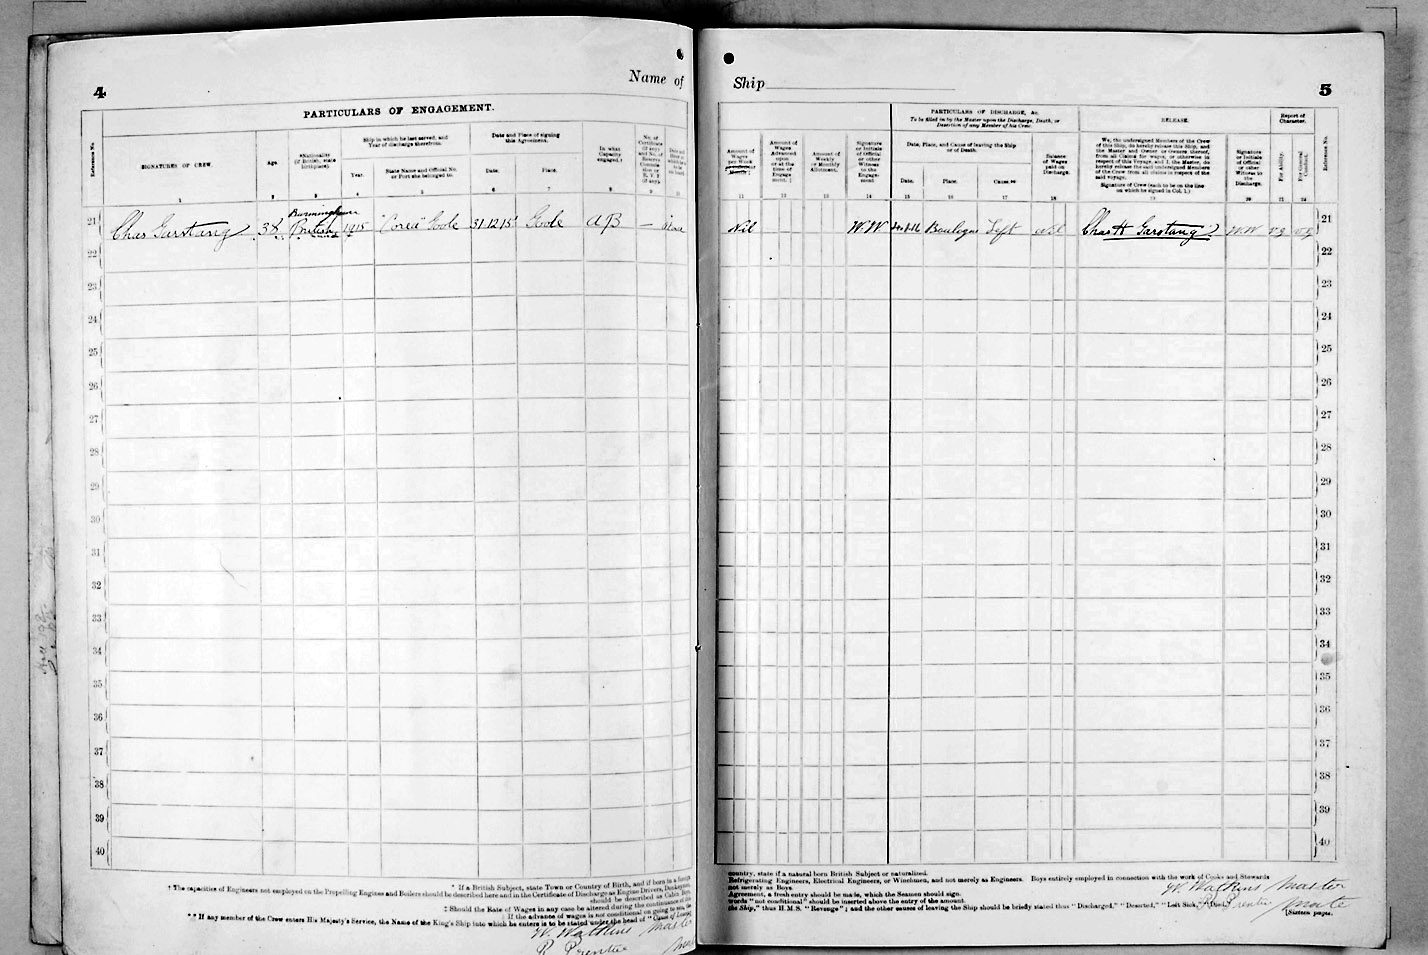 4
Name of
PARTICULARS OF ENGAGEMENT.
Reference No.
SIGNATURES OF CREW.
Age.
*Nationality
(if British, state
birthplace).
Ship in which he last served, and
Year of discharge therefrom.
Year.
State Name and Official No.
or Port she belonged to.
Date and Place of signing
this Agreement.
Date.
Place.
In what
Capacity
engaged.†
No. of
Certificate
(if any)
1 2 3 4 5 6 7 8 9 10
21 Chas Garstang 38 Birmingham
British 1915 "Corea" Goole 31.12.15 Goole AB —
22
23
24
25
26
27
28
29
30
31
32
33
34
35
36
37
38
39
40
* If a British Subject, state Town or Country of Birth, and if born in a foreign
† The capacities of Engineers not employed on the Propelling Engines and Boilers should be described here and in the Certificate of Discharge as Engine Drivers, Donkeymen
should be described as Cabin Boys
‡ Should the Rate of Wages in any case be altered during the continuance of the
|| If the advance of wages is not conditional on going to sea, the
** If any member of the Crew enters His Majesty's Service, the Name of the King's Ship into which he enters is to be stated under the head of "Cause of Leaving
W. Watkins Master
R. Prentice Mate
Ship
5
Amount of
Wages
per Week
Month.‡
Amount of
Wages
Advanced
upon
or at the
time of
Engage-
ment.||
Amount of
Weekly
or Monthly
Allotment.
Signature
or Initials
of Official
or other
Witness
to the
Engage-
ment
PARTICULARS OF DISCHARGE, &c.
To be filled in by the Master upon the Discharge, Death, or
Desertion of any Member of his Crew.
Date, Place, and Cause of leaving the Ship
or of Death.
Date.
Place.
Cause.**
Balance
of Wages
paid on
Discharge.
RELEASE.
We, the undersigned Members of the Crew
of this Ship, do hereby release this Ship, and
the Master and Owner or Owners thereof,
from all Claims for wages, or otherwise in
respect of this Voyage; and I, the Master, do
hereby release the undersigned Members
of the Crew from all claims in respect of the
said voyage.
Signature of Crew (each to be on the line
on which he signed in Col. 1.)
Signature
or Initials
of Official
or other
Witness to
the
Discharge.
Report of
Character.
For Ability.
For General
Conduct.
Reference No.
11 12 13 14 15 16 17 18 19 20 21 22
Nil W.W Boulogne Left Nil Chas H Garstang W.W V.G V.G 21
22
23
24
25
26
27
28
29
30
31
32
33
34
35
36
37
38
39
40
country, state if a natural born British Subject or naturalized.
Refrigerating Engineers, Electrical Engineers, or Winchmen, and not merely as Engineers. Boys entirely employed in connection with the work of Cooks and Stewards
not merely as Boys.
Agreement, a fresh entry should be made, which the Seamen should sign.
words "not conditional" should be inserted above the entry of the amount.
the Ship," thus H.M.S. "Revenge"; and the other causes of leaving the Ship should be briefly stated thus "Discharged," "Deserted," "Left Sick," "Died."
W. Watkins Master
R. Prentice Mate
[Sixteen pages.